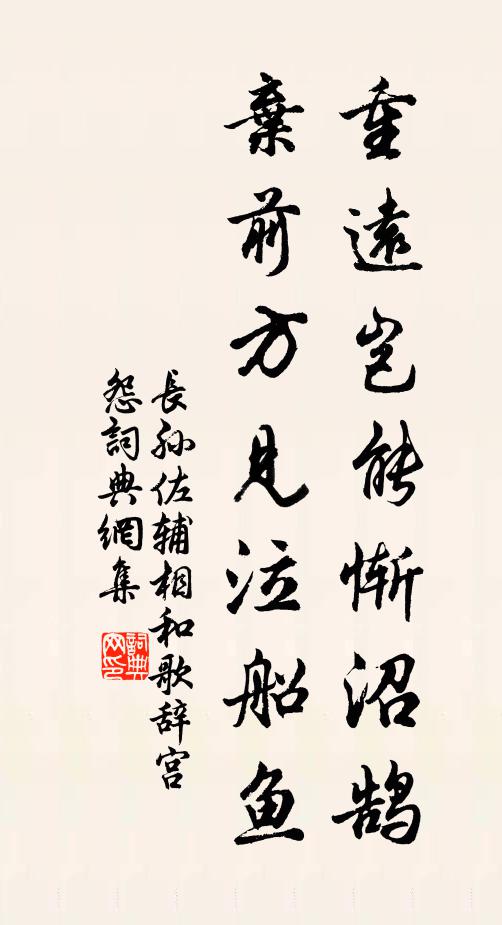 重遠岂能惭沼鹄
棄前方见泣船鱼
長孙佐辅相和歌辞宫
怨詞典網集
詞典
网印